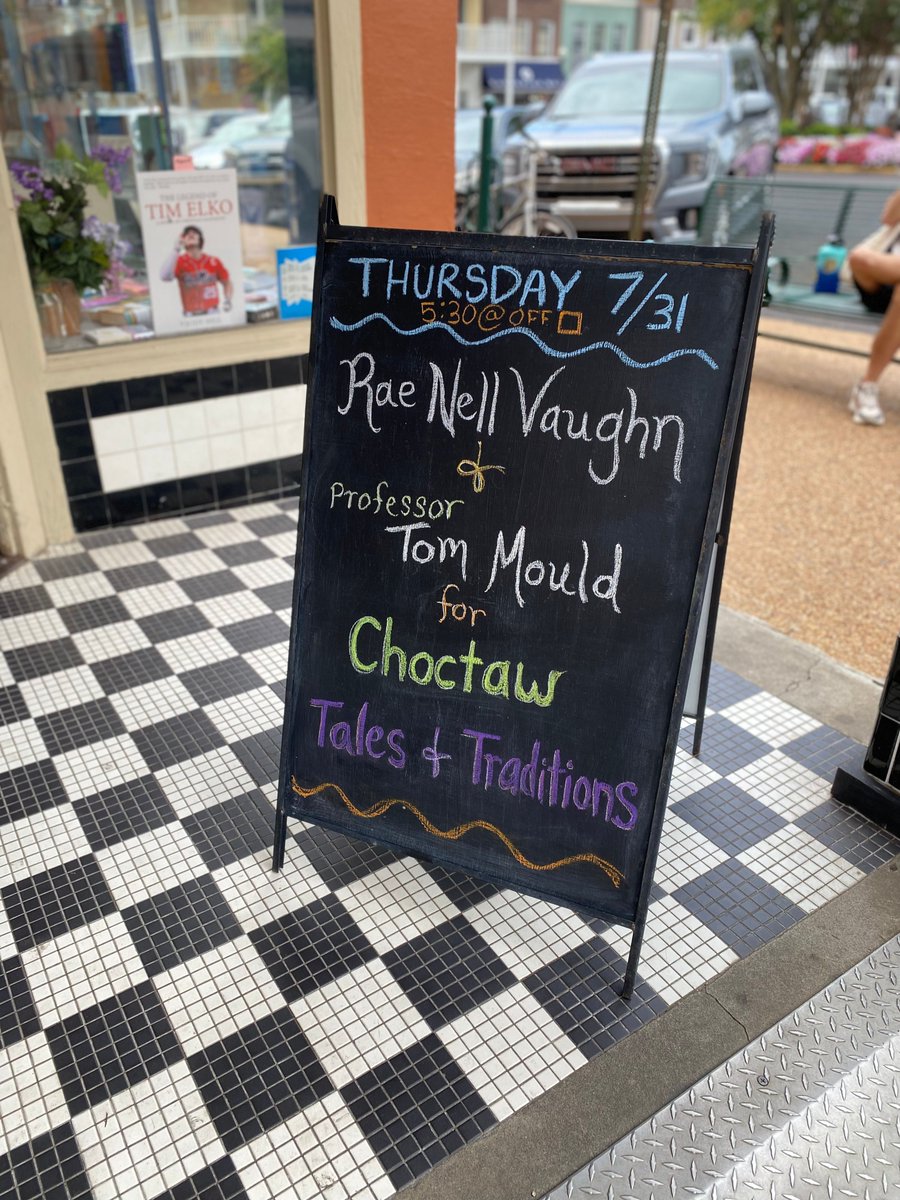 THURSDAY 7/31
5:30 @ OFF □
Rae Nell Vaughn
&
Professor
Tom Mould
for
Choctaw
Tales & Traditions
THE LEGEND OF
TIM ELKO
GMC